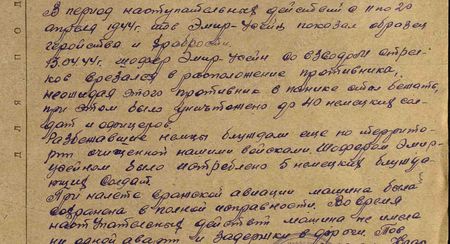 В период наступательных действий с 11 по 20
апреля 1944г. тов Эмир-Усейн показал образец
геройства и храбрости.
13.04.44г. шофер Эмир-Усейн со взводом стрел-
ков врезался в расположение противника,
неожидая этого противник в панике стал бежать,
при этом было уничтожено до 40 немецких сол-
дат и офицеров.
Разбежавшие немцы блуждали еще по террито-
рии очищенной нашими войсками. Шофером Эмир-
Усейном было истреблено 5 немецких блужда-
ющих солдат.
При налете вражеской авиации машина была
сохранена в полной исправности. Во время
наступательных действий машина не имела
ни одной аварии и задержки в дороге. Тов